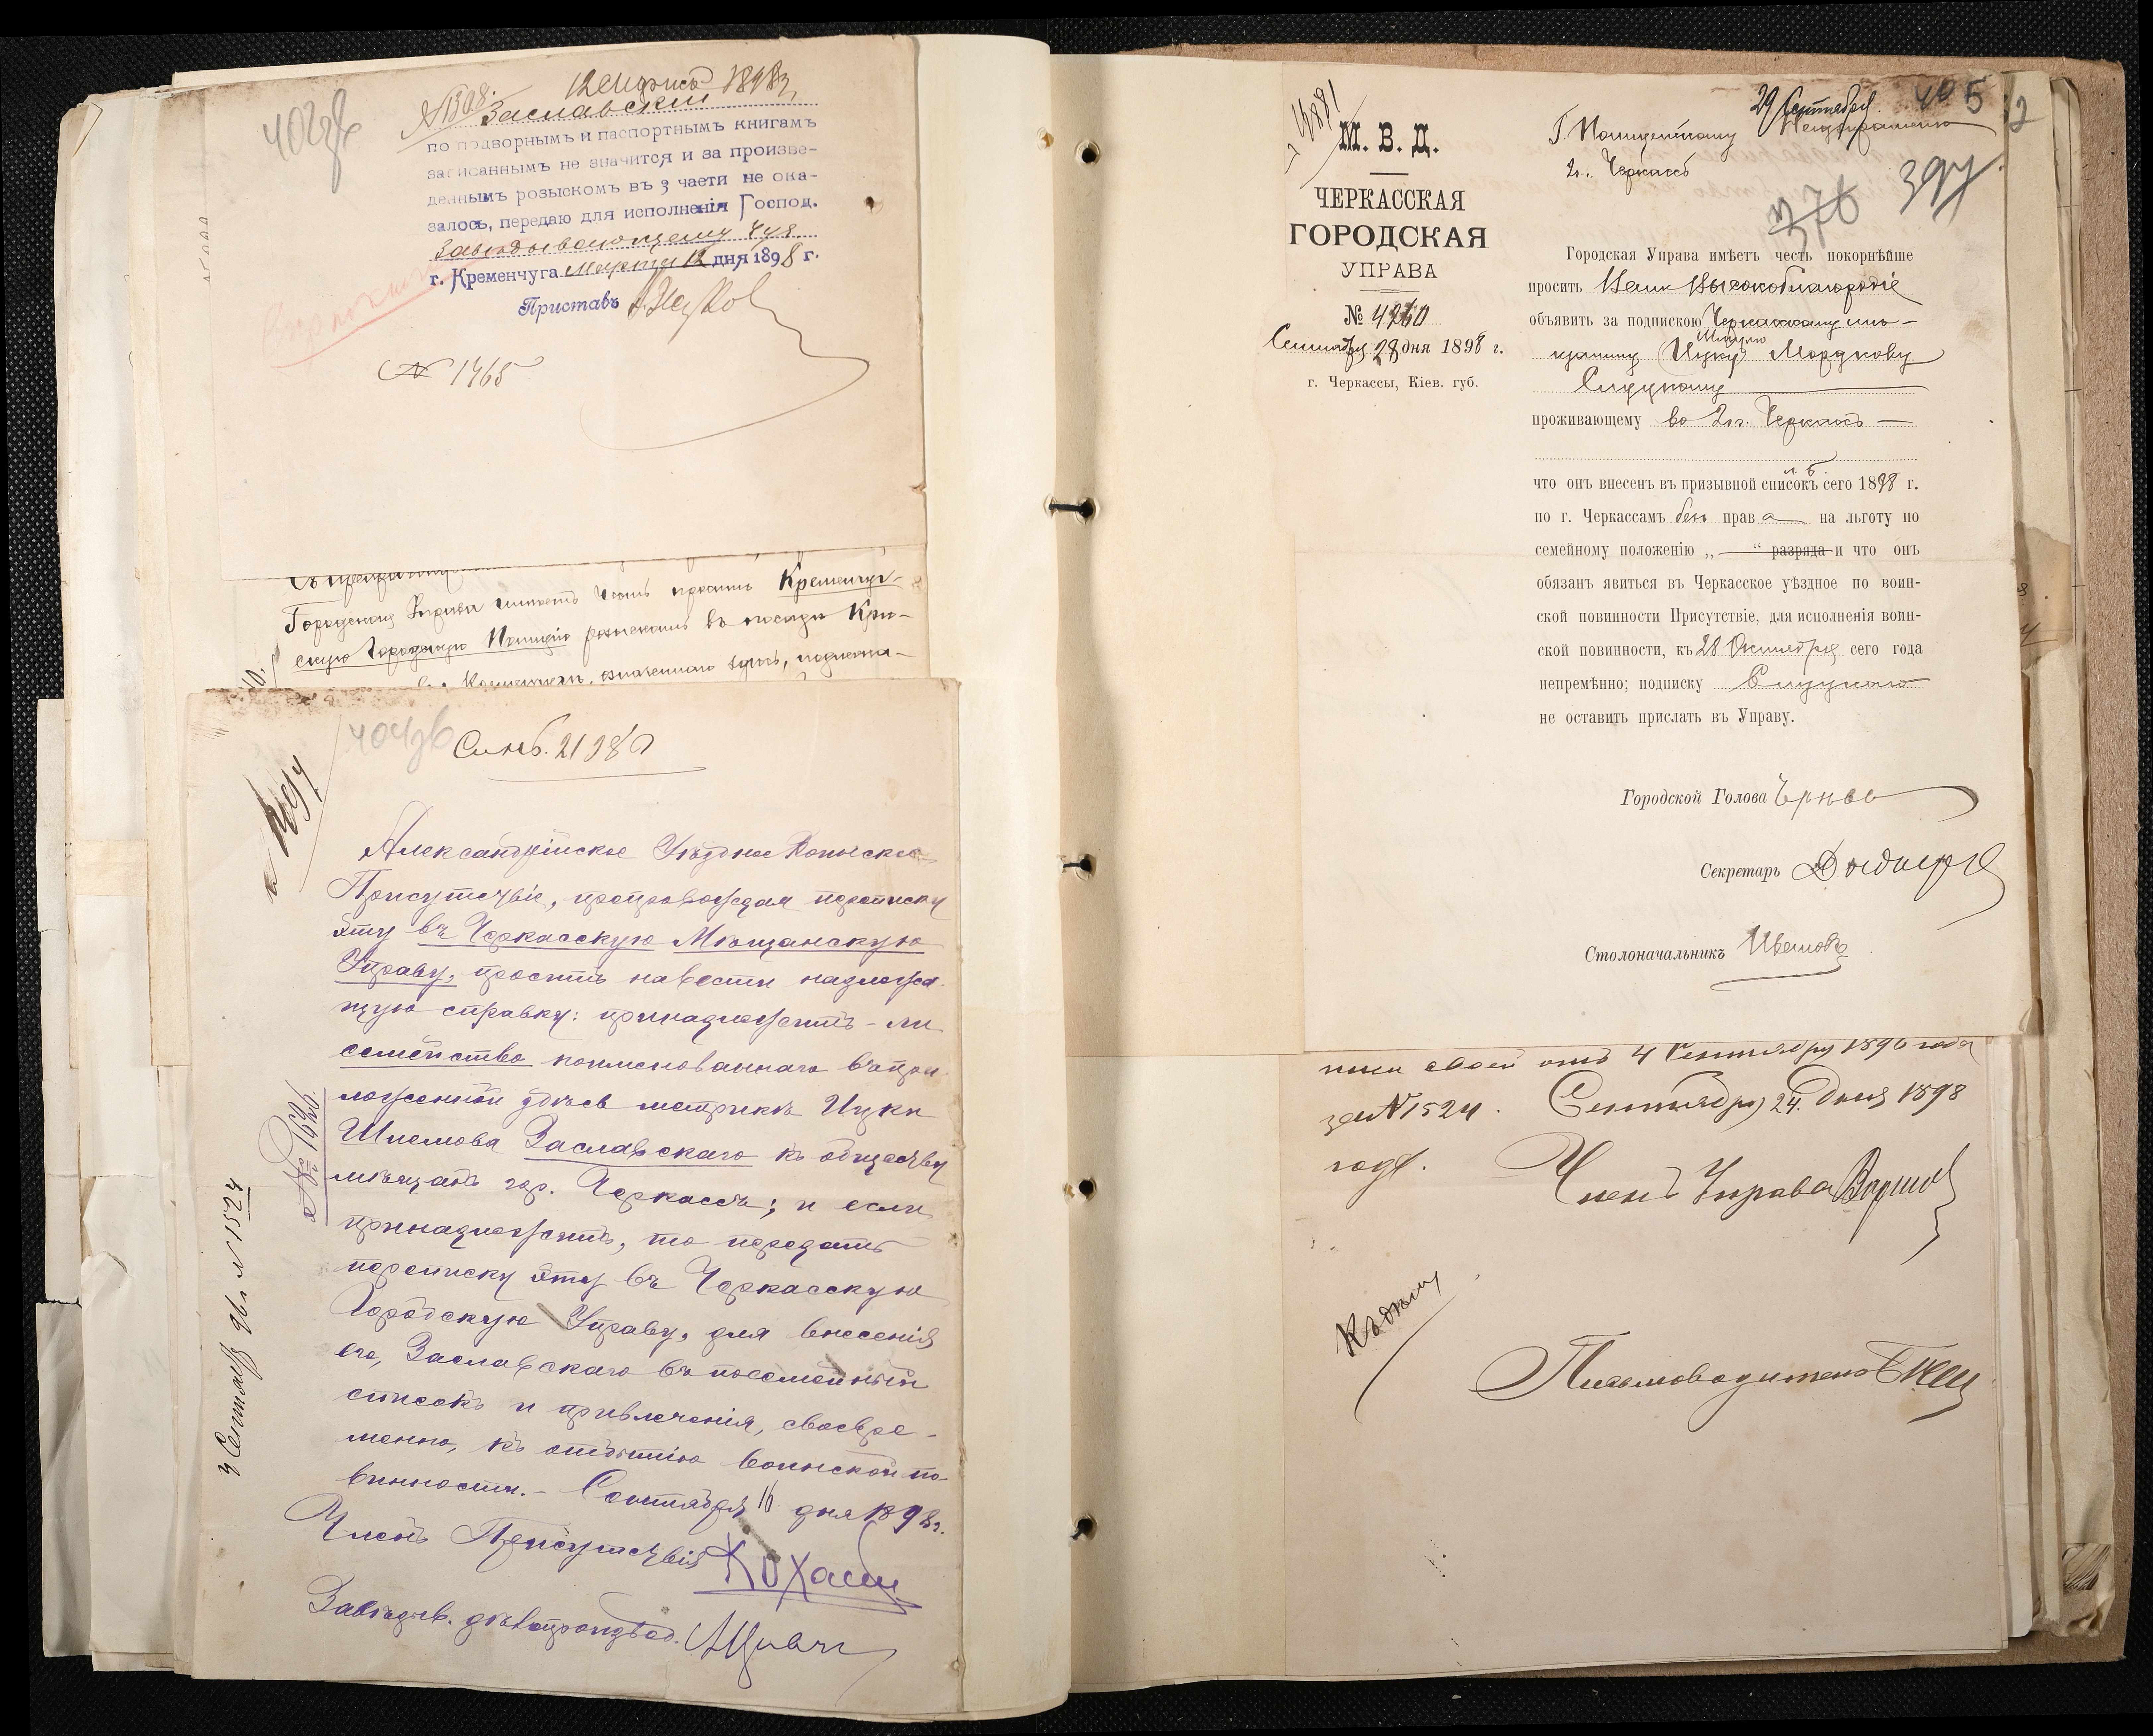 402об
12 марта 1898 г.
№1308. Заславскій
по подворнымъ и паспортнымъ книгамъ
записаннымъ не значится и за произве-
деннымъ розыскомъ въ 3 части не ока-
залось, передаю для исполненія Господ.
Завѣдывающему 4 уч.
г. Кременчуга Марта 12 дня 1898 г.
Приставъ
№ 1465
Городская Управа имѣетъ честь просить Кременчуг-
скую Городскую Полицію розыскать въ посадѣ Крю-
404об
Александрійское Уѣздное Воинское
Присутствіе, препровождая переписку
эту въ Черкасскую Мѣщанскую
Управу, проситъ навести надлежа-
щую справку: принадлежитъ-ли
семейство поименованнаго въ при-
ложенной здѣсь метрикѣ Ицки
Шлемова Заславскаго къ обществу
мѣщанъ гор. Черкассъ; и если
принадлежитъ, то передать
переписку эту въ Черкасскую
Городскую Управу, для внесенія
его, Заславскаго въ посемейный
списокъ и привлеченія, своевре-
менно, къ отбытію воинской по-
винности.- Сентября 16 дня 1898 г.
Членъ Присутствія
Завѣдыв. дѣлопроизвод.
№ 1696
4 Сентября 96 г. № 1524
М. В. Д.
ЧЕРКАССКАЯ
ГОРОДСКАЯ
УПРАВА
№
Сентября 28 дня 1898 г.
г. Черкассы, Кіев. губ.
29 Сентября 405
Г. Полицейскому Надзирателю
2 ч. Черкассъ
376 394
Городская Управа имѣетъ честь покорнѣйше
просить Ваше Высокоблагородіе
объявить за подпискою Черкасскому мѣ-
щанину (Ицку) Мордкову
проживающему во 2 ч. Черкассъ
что онъ внесенъ въ призывной списокъ л. Б. сего 1898 г.
по г. Черкассамъ безъ права на льготу по
семейному положенію „—“ разряда и что онъ
обязанъ явиться въ Черкасское уѣздное по воин-
ской повинности Присутствіе, для исполненія воин-
ской повинности, къ 28 Октября сего года
непремѣнно; подписку
не оставить прислать въ Управу.
Городской Голова
Секретарь
Столоначальникъ
своей отъ 4 Сентября 1896 года
за №1524. Сентября 24 дня 1898
года.
Членъ Управы
Къ дѣлу
Письмоводитель